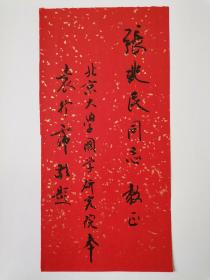 張兆民同志教正
北京大學國學研究院奉
袁行霈敬題